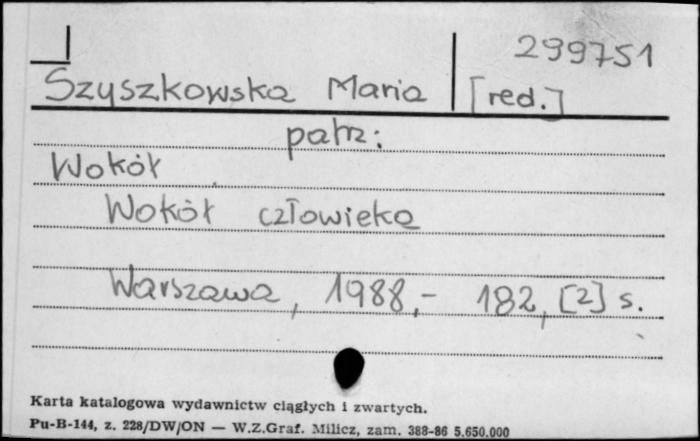 299751
Szyszkowska Maria [red.]
patrz:
Wokół
Wokół człowieka
Warszawa, 1988,- 182, [2] s.
Karta katalogowa wydawnictw ciągłych i zwartych.
Pu-B-144, z. 228/DW/ON — W.Z.Graf. Milicz, zam. 388-86 5.650.000